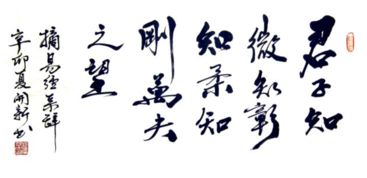 君子知
微知彰
知柔知
剛萬夫
之望
摘易經系辞
辛卯夏開新书